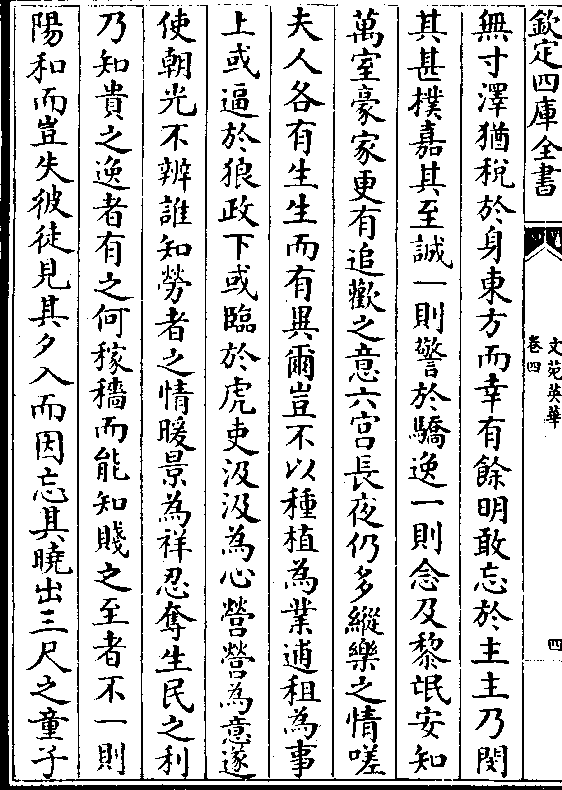 欽定四庫全書
文苑英華
卷四
四
無寸澤猶稅於身東方而幸有餘明敢忘於主主乃閔
其甚樸嘉其至誠一則警於驕逸一則念及黎氓安知
萬室豪家更有追歡之意六宮長夜仍多縱樂之情嗟
夫人各有生生而有異爾豈不以種植為業逋租為事
上或逼於狼政下或臨於虎吏汲汲為心營營為意遂
使朝光不辨誰知勞者之情暖景為祥忍奪生民之利
乃知貴之逸者有之何稼穡而能知賤之至者不一則
陽和而豈失彼徒見其夕入而因忘其曉出三尺之童子